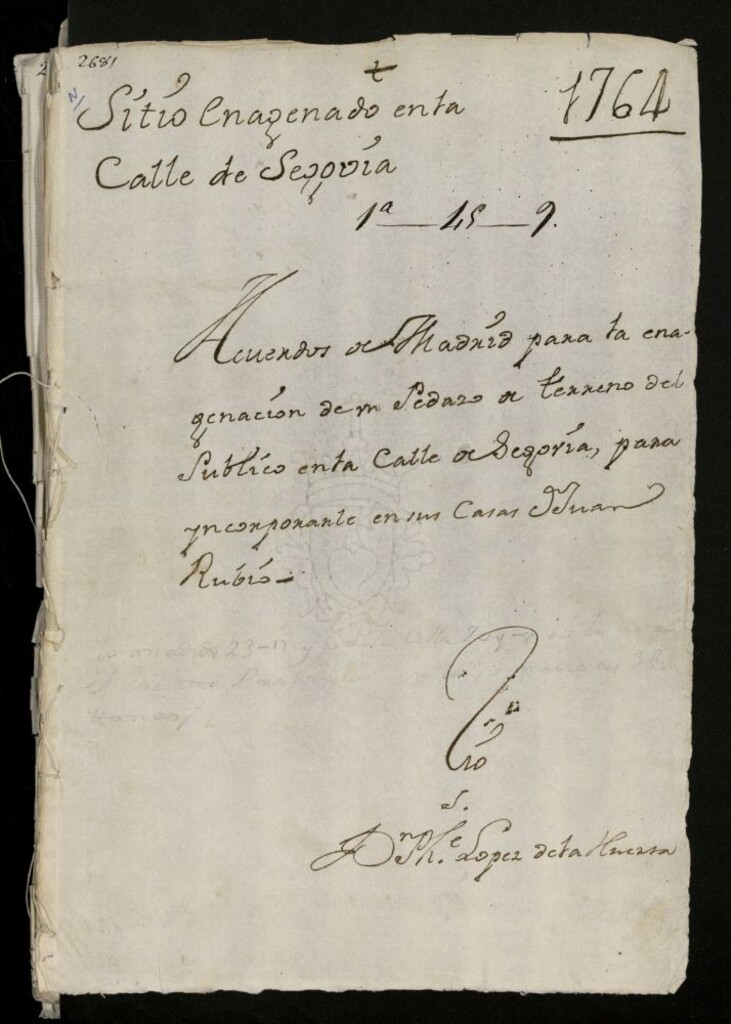 2681
Sitio Enagenado enla
Calle de Segovia
1764
1ª—45—9.
Acuerdos de Madrid para la ena-
genacion de un Pedazo de terreno del
Publico enla Calle de Segovia, para
yncorporarle en sus Casas Dn Juan
Rubio
Srio
S.
Dn Phe. Lopez dela Huerta